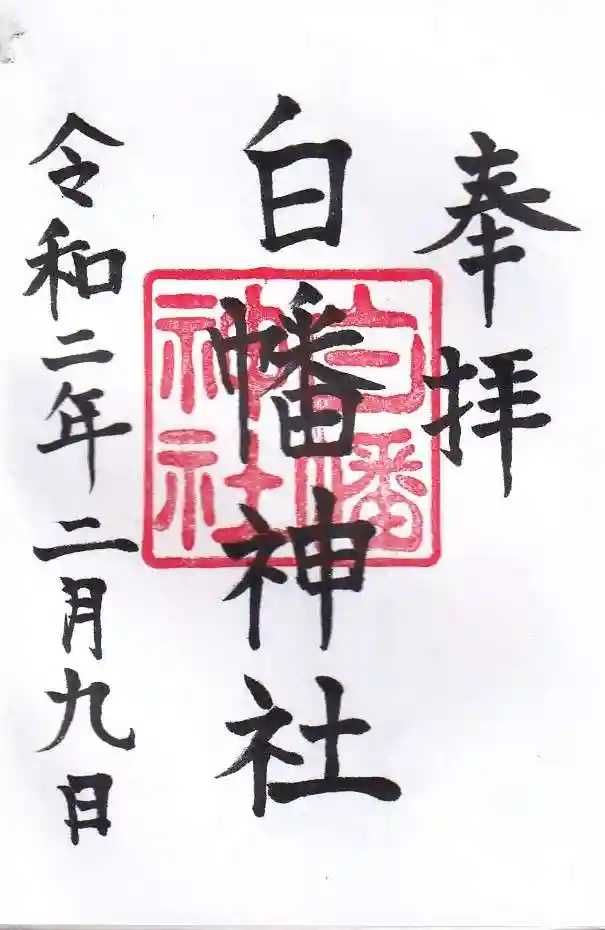 奉拝
白幡神社
白幡
神社
令和二年二月九日